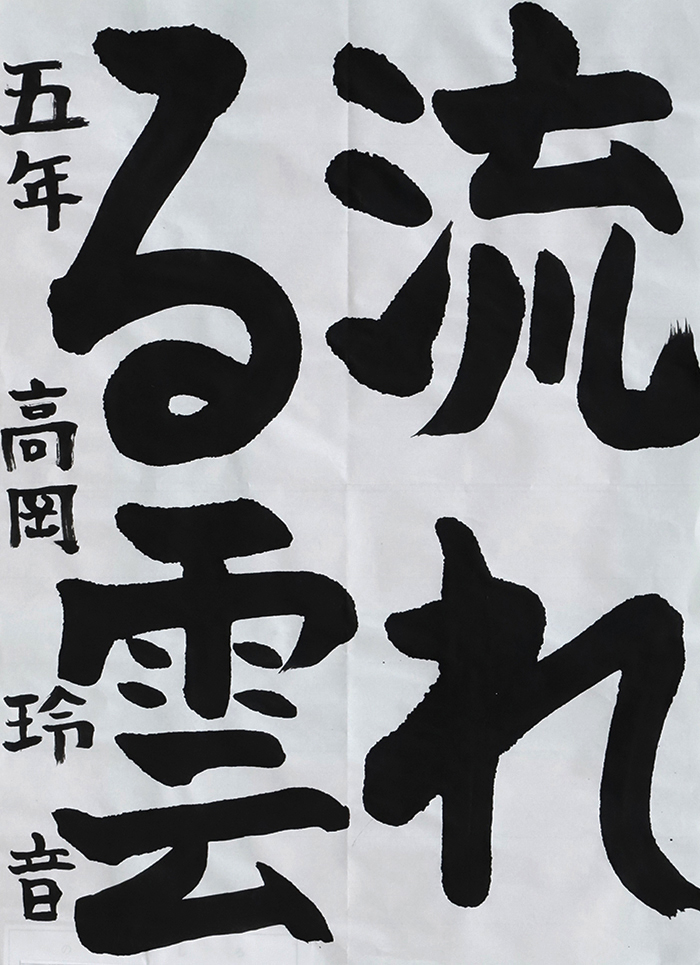 流れ
る雲
五年 高岡 玲音